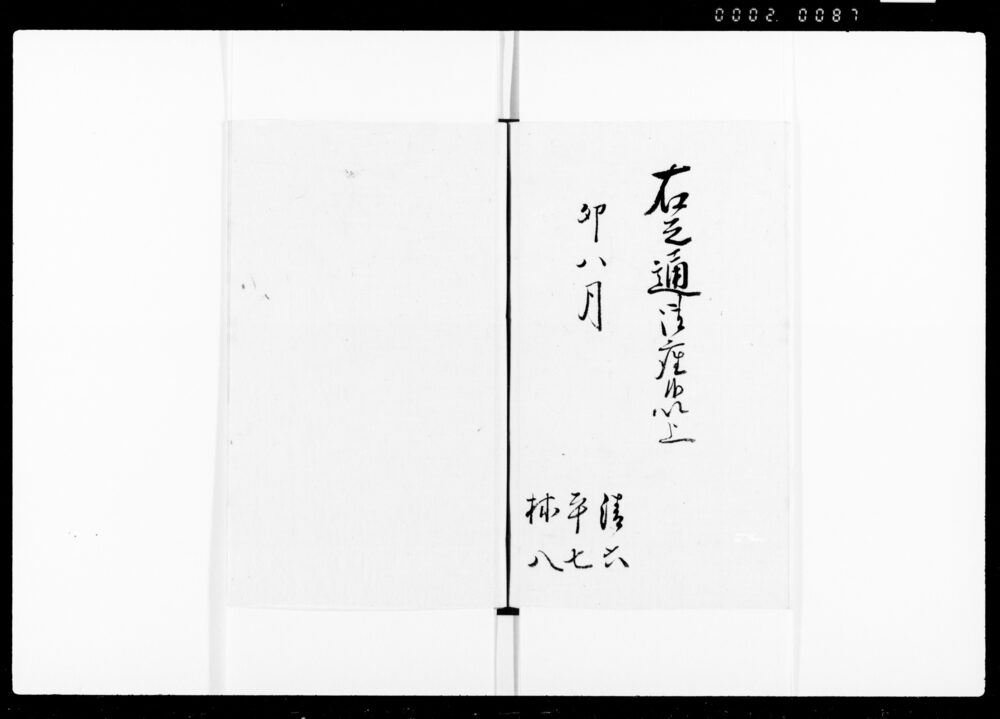 0002. 0087
右之通御座候以上
卯八月
清六
平七
林八